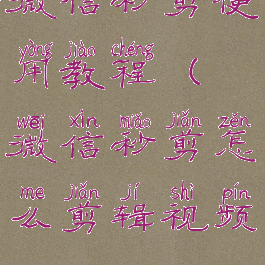 微信秒剪使
yòng jiào chéng
用教程（
wēi xìn miǎo jiǎn zěn
微信秒剪怎
me jiǎn jí shì pín
么剪辑视频